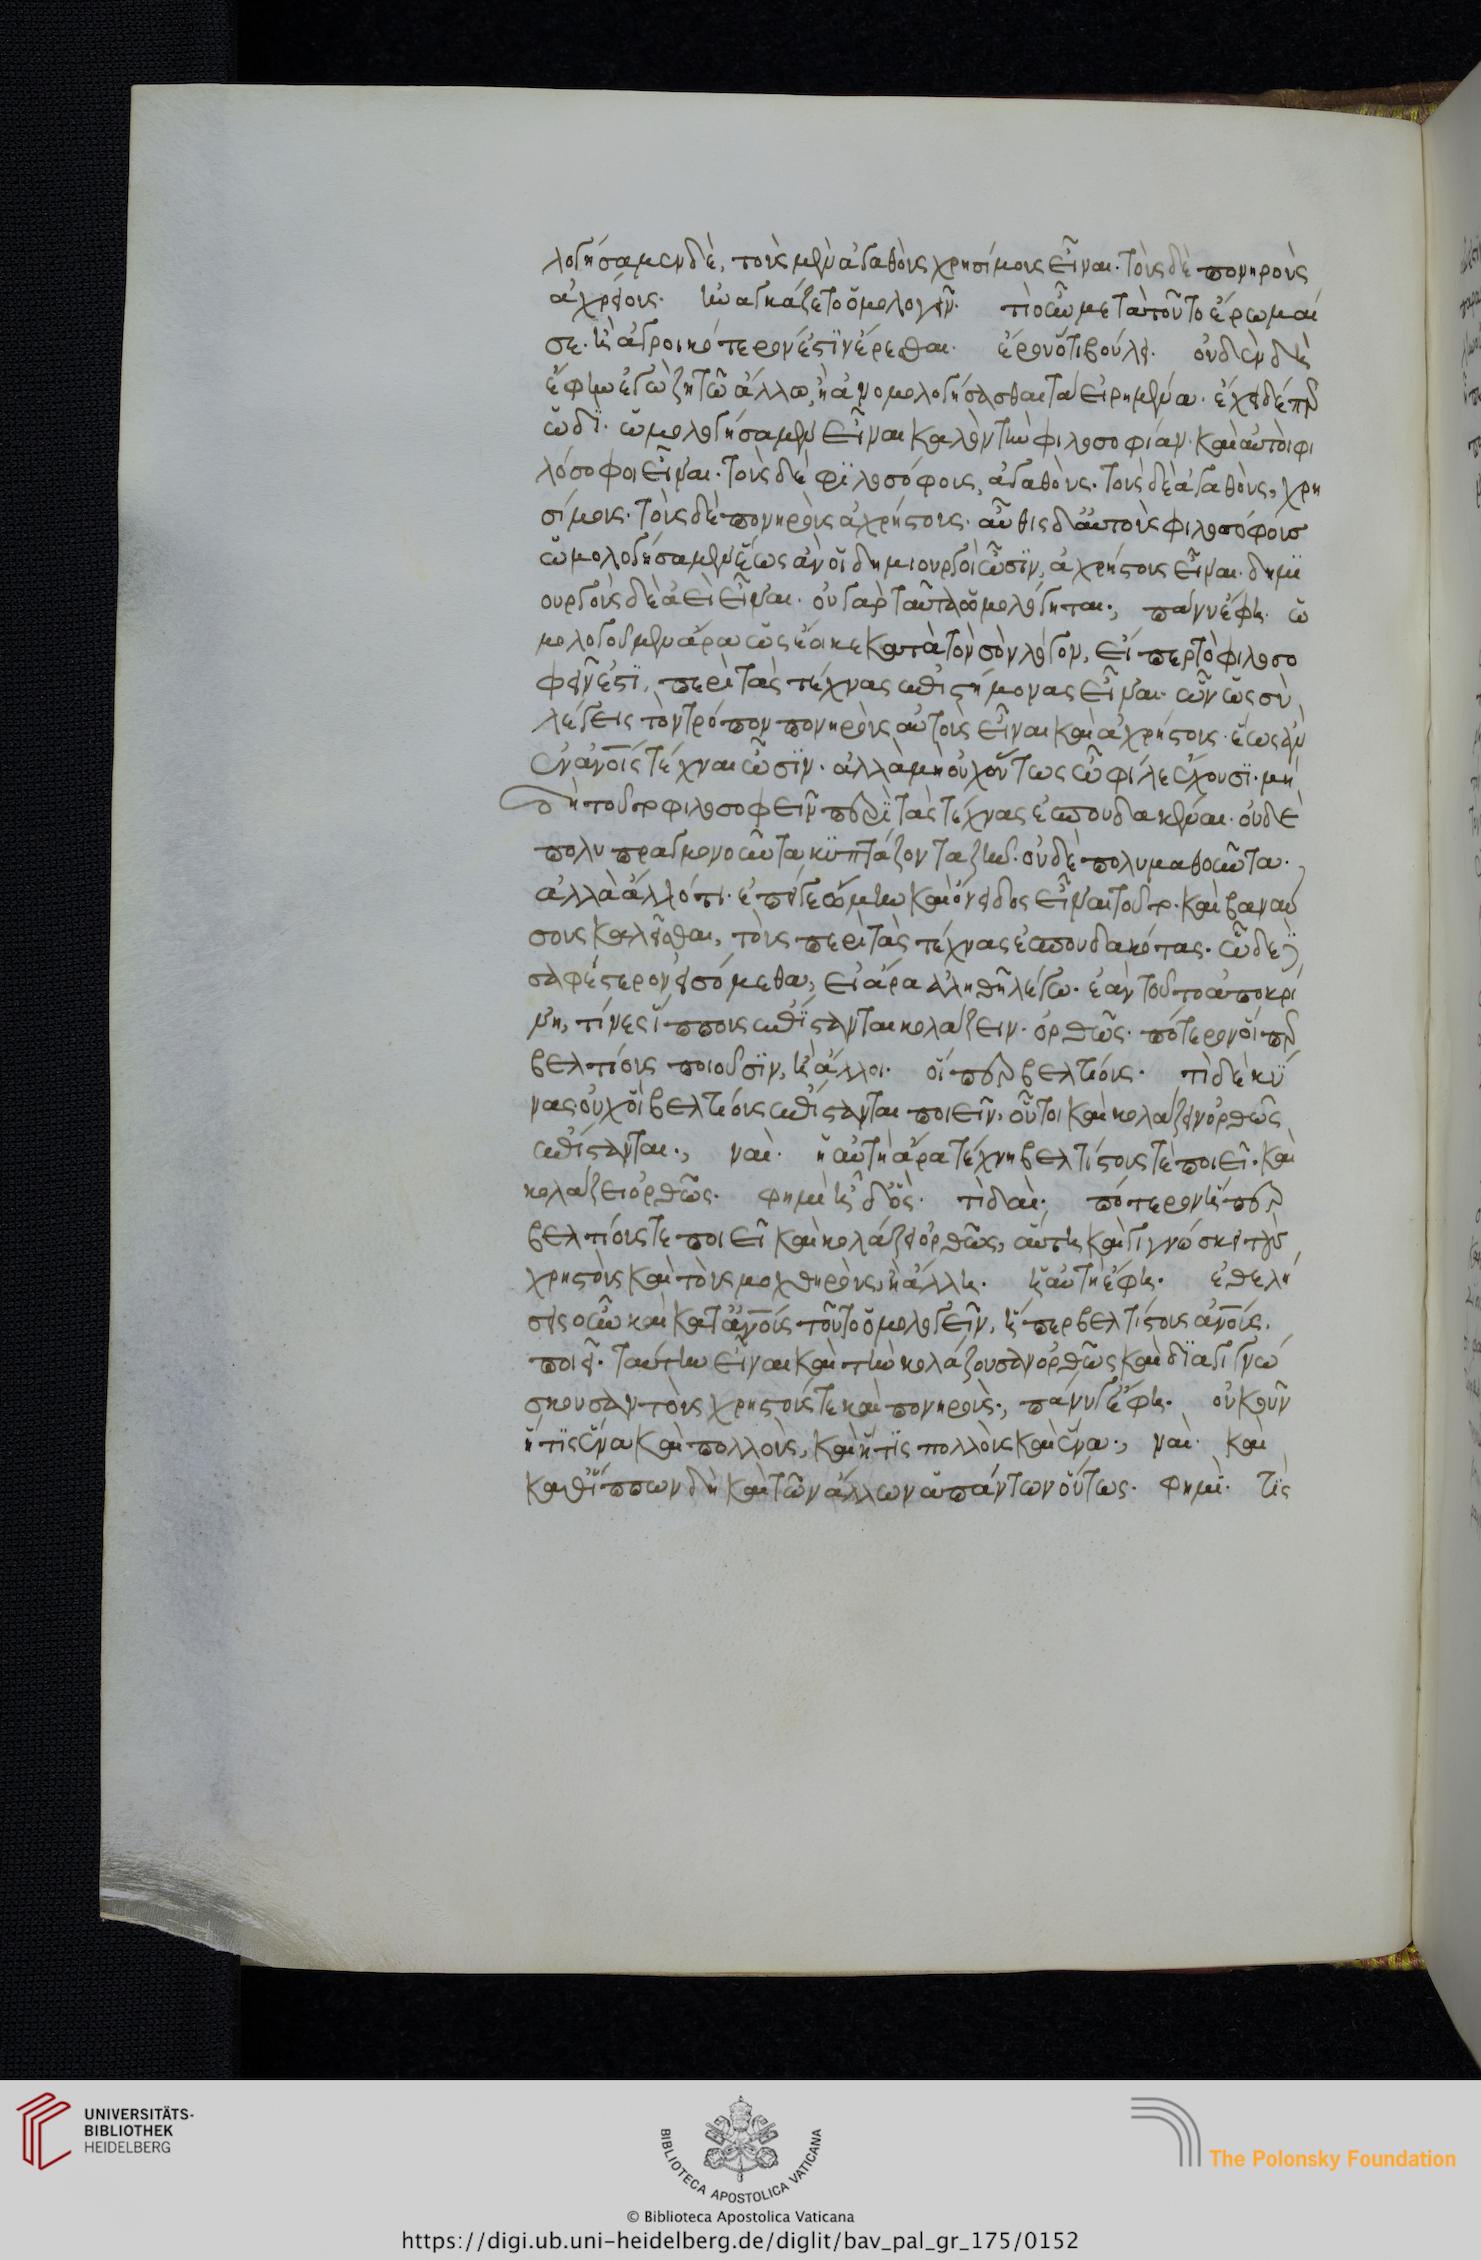 λογήσαμεν δὲ, τοὺς μὲν ἀγαθοὺς χρησίμους εἶναι· τοὺς δὲ πονηροὺς
ἀχρείους· ἠναγκάζετο ὁμολογεῖν· τί οὖν μετὰ τοῦτο ἐρωμαί
σε· ἢ ἀγροικότερον ἐστὶν ἐρέσθαι· ἐροῦ ὅτι βούλει· οὐδὲν δὴ
ἔφην ἐγὼ ζητῶ ἄλλο, ἢ ἀνομολογήσασθαι τὰ εἰρημένα· ἔχει δέ πως
ὡδί· ὡμολογήσαμεν εἶναι καλὸν τὴν φιλοσοφίαν· καὶ αὐτοὶ φι
λόσοφοι εἶναι· τοὺς δὲ φιλοσόφους, ἀγαθοὺς· τοὺς δὲ ἀγαθοὺς, χρη
σίμους· τοὺς δὲ πονηροὺς ἀχρήστους· αὖθις δ' αὐτοὺς φιλοσόφους
ὡμολογήσαμεν ἕως ἂν οἱ δημιουργοὶ ὦσιν, ἀχρήστους εἶναι· δημι
ουργοὺς δὲ ἀεὶ εἶναι· οὐ γὰρ ταῦτα ὡμολόγηται; πάνυ ἔφη· ὡ
μολογοῦμεν ἄρα ὡς ἔοικε κατὰ τὸν σὸν λόγον, εἴπερ τὸ φιλοσο
φεῖν ἐστὶ, περὶ τὰς τέχνας ἐπιστήμονας εἶναι· ὧν ὡς σὺ
λέγεις τὸν τρόπον πονηροὺς αὐτοὺς εἶναι καὶ ἀχρήστους· ἕως ἂν
ἐν ἀνοις τέχναι ὦσιν· ἀλλὰ μὴ οὐχ οὕτως ὦ φίλε ἔχουσι· μη
δὴ τοῦτο φιλοσοφεῖν περὶ τὰς τέχνας ἐσπουδακέναι· οὐδὲ
πολυπραγμονοῦντα κυπτάζοντα ζῆν· οὐδὲ πολυμαθοῦντα·
ἀλλὰ ἄλλό τι· ἐπεὶ γε ᾤμην καὶ ὄνειδος εἶναι τοῦτο· καὶ βαναύ
σους καλεῖσθαι, τοὺς περὶ τὰς τέχνας ἐσπουδακότας· ὧδε
σαφέστερον εἰσόμεθα, εἰ ἄρα ἀληθῆ λέγω· ἐὰν τοῦτο ἀποκρί
νῃ, τίνες ἵππους ἐπίστανται κολάζειν ὀρθῶς· πότερον οἵπερ
βελτίους ποιοῦσιν, ἢ ἄλλοι· οἵπερ βελτίους· τί δὲ κύ
νας οὐχ οἱ βελτίους ἐπίστανται ποιεῖν, οὗτοι καὶ κολάζειν ὀρθῶς
ἐπίστανται; ναί· ἡ αὐτὴ ἄρα τέχνη βελτίστους τὲ ποιεῖ· καὶ
κολάζει ὀρθῶς· φημὶ ἦ δ' ὅς· τί δαί; πότερον ἥπερ
βελτίους τε ποιεῖ καὶ κολάζει ὀρθῶς, αὕτη καὶ γιγνώσκει τοὺς
χρηστοὺς καὶ τοὺς μοχθηροὺς, ἢ ἄλλη· ἡ αὐτὴ ἔφη· ἐθελή
σεις οὖν καὶ κατ' ἀνοις τοῦτο ὁμολογεῖν, ἥπερ βελτίστους ἀνοις
ποιεῖ· ταύτην εἶναι καὶ τὴν κολάζουσαν ὀρθῶς καὶ διαγιγνώ
σκουσαν τοὺς χρηστούς τε καὶ πονηροὺς; πάνυ γε ἔφη· οὐκοῦν
ἥτις ἕνα καὶ πολλοὺς, καὶ ἥτις πολλοὺς καὶ ἕνα; ναί· καὶ
καθ' ἵππων δὴ καὶ τῶν ἄλλων ἁπάντων οὕτως· φημί· τίς
UNIVERSITÄTS-
BIBLIOTHEK
HEIDELBERG
BIBLIOTECA APOSTOLICA VATICANA
The Polonsky Foundation
© Biblioteca Apostolica Vaticana
https://digi.ub.uni-heidelberg.de/diglit/bav_pal_gr_175/0152